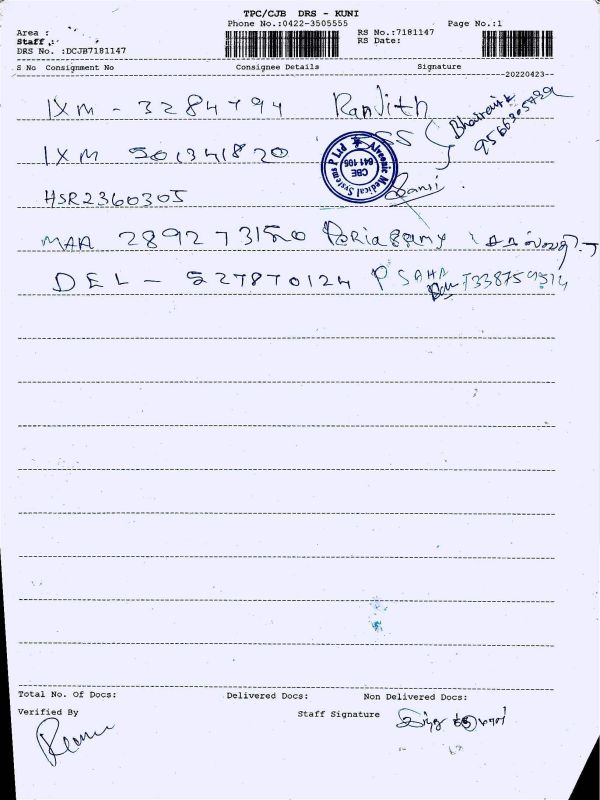 TPC/CJB DRS - KUNI
Phone No.:0422-3505555 Page No.:1
Area : RS No.:7181147
Staff : RS Date:
DRS No. :DCJB7181147
S No Consignment No Consignee Details Signature
20220423
IXM - 3284794 Ranjith
IXM 501341820 SS
Alveonic Medical Systems P Ltd
CBE
641 105
HSR2360305
MAA
DEL - 527870124 P SAHA
Total No. Of Docs: Delivered Docs: Non Delivered Docs:
Verified By Staff Signature